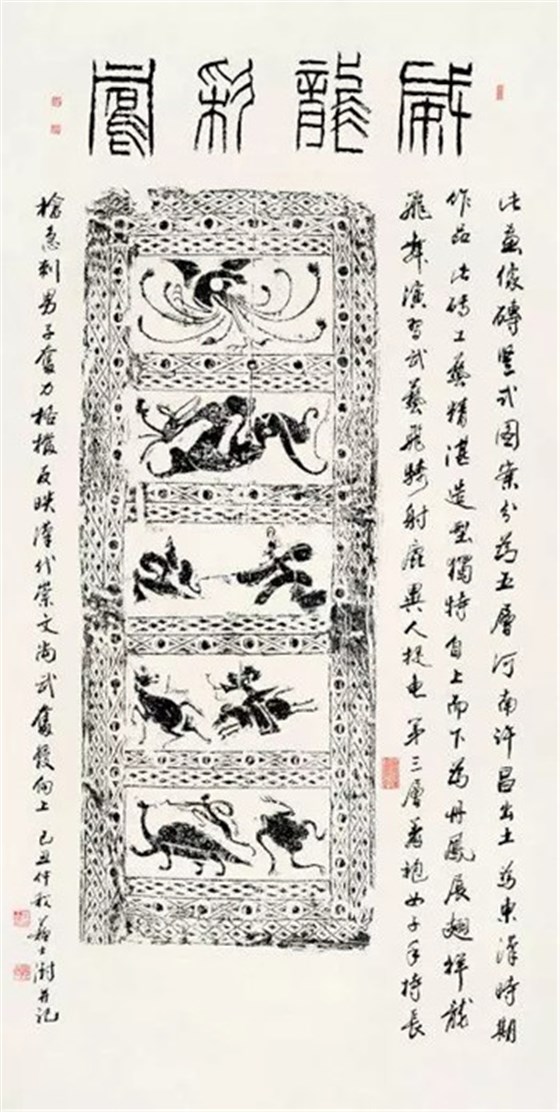 威龍彩鳳
此畫像磚豎式圖案分為五層河南許昌出土為東漢時期
作品此磚工藝精湛造型獨特自上而下為丹鳳展翅祥龍
飛舞演習武藝飛騎射鹿異人捉 第三層著袍女子手持長
槍急刺男子奮力抵擋反映漢代崇文尚武奮發向上 己丑仲秋蘇士澍並記